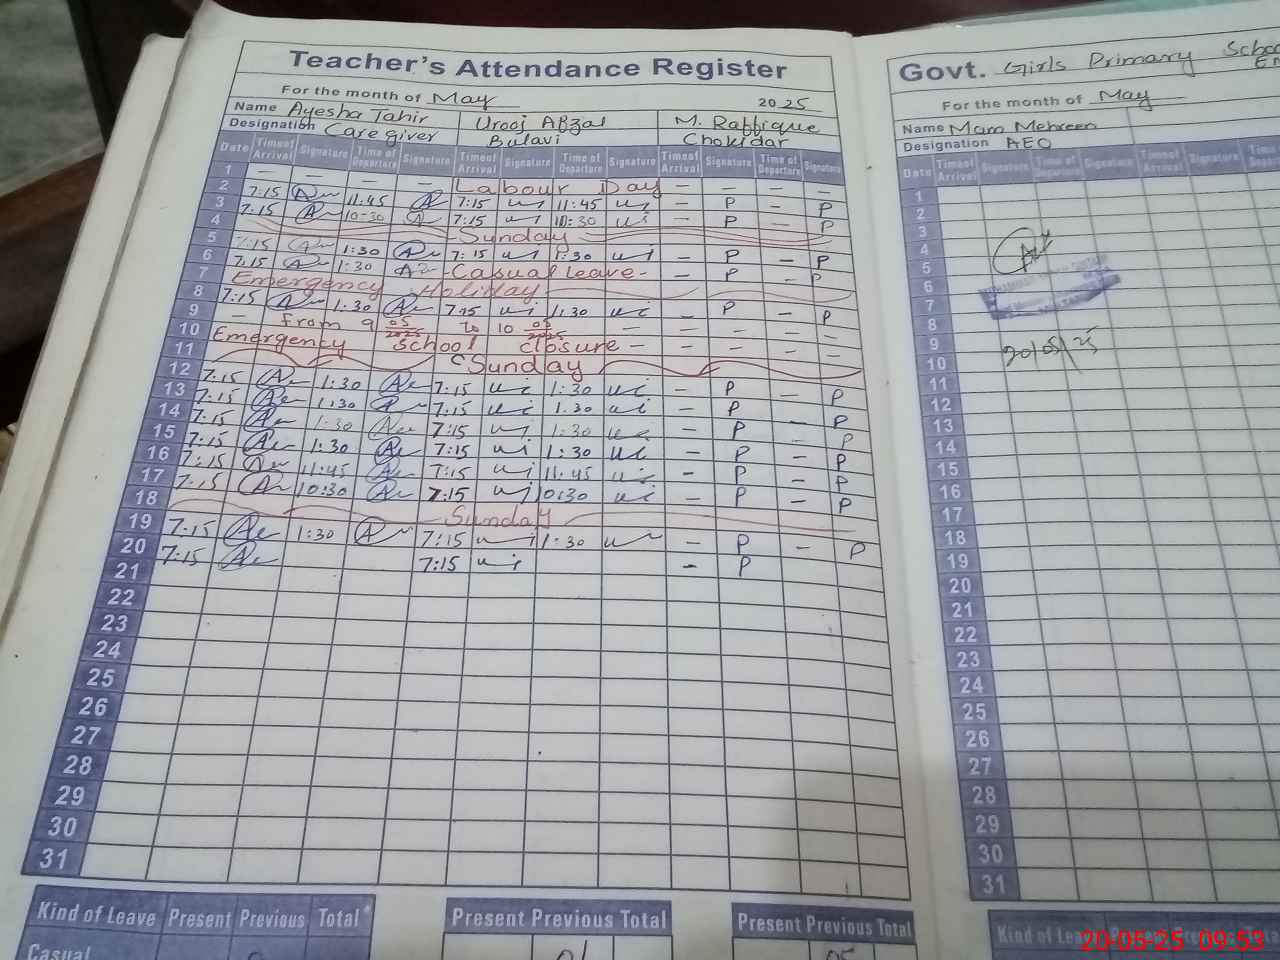 Teacher's Attendance Register
For the month of May 2025
Name Ayesha Tahir Urooj Afzal M. Raffique
Designation Care giver Bulavi Chokidar
Date Time of Arrival Signature Time of Departure Signature Time of Arrival Signature Time of Departure Signature Time of Arrival Signature Time of Departure Signature
1 — — — — Labour Day — — — —
2 7:15 11:45 7:15 11:45 — P — P
3 7:15 10:30 7:15 10:30 — P — P
4 Sunday
5 7:15 1:30 7:15 1:30 — P — P
6 7:15 1:30 - Casual leave - — P — P
7 Emergency Holiday
8 7:15 1:30 7:15 1:30 — P — P
9 — From 9 05 2025 to 10 05 2025 — — — — —
10 Emergency School closure — — — — —
11 Sunday
12 7:15 1:30 7:15 1:30 — P — P
13 7:15 1:30 7:15 1:30 — P — P
14 7:15 1:30 7:15 1:30 — P — P
15 7:15 1:30 7:15 1:30 — P — P
16 7:15 11:45 7:15 11:45 — P — P
17 7:15 10:30 7:15 10:30 — P — P
18 Sunday
19 7:15 1:30 7:15 1:30 — P — P
20 7:15 7:15 — P
21
22
23
24
25
26
27
28
29
30
31
Kind of Leave Present Previous Total
Present Previous Total
Present Previous Total
Casual 01 05
Govt. Girls Primary
For the month of May
Name Mam Mehreen
Designation AEO
Date Time of Arrival Signature Time of Departure Signature Time of Arrival Signature
1
2
3
4
5
6
7
8
9
10
11
12
13
14
15
16
17
18
19
20
21
22
23
24
25
26
27
28
29
30
31
20/05/25
Kind of Leave
20-05-25 09:53